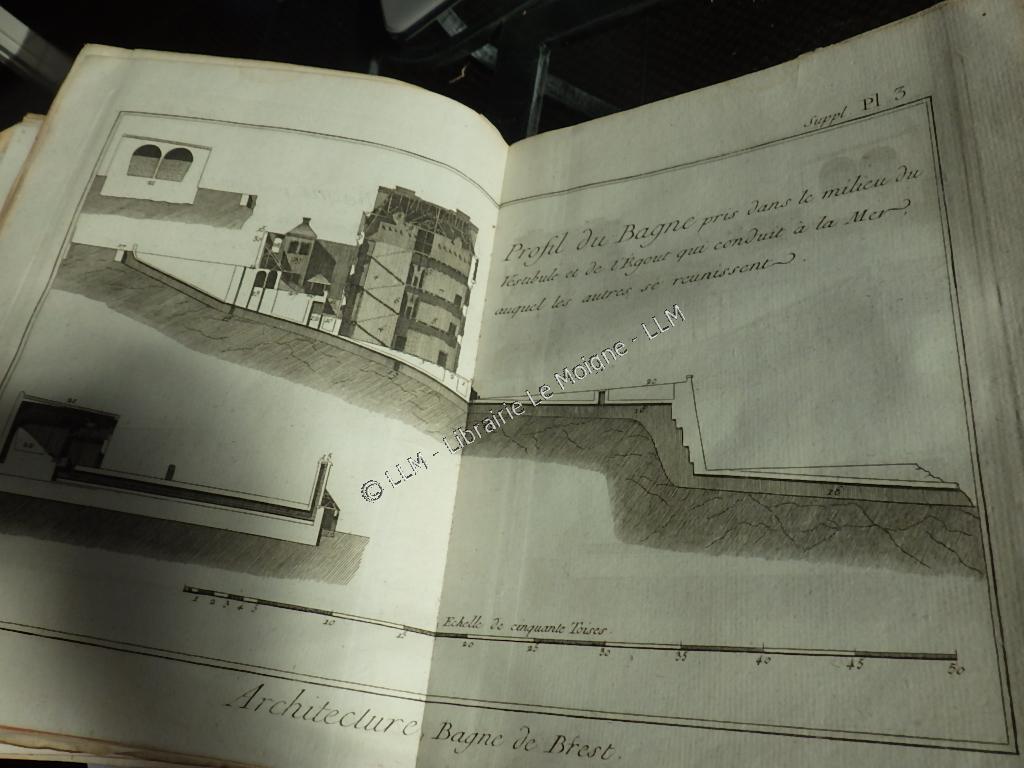 Suppl Pl 3
Profil du Bagne pris dans le milieu du
Vestibule et de l'Egout qui conduit à la Mer,
auquel les autres se reunissent.
20
18
16
© LLM - Librairie Le Moigne - LLM
Echelle de cinquante Toises.
1 2 3 4 5 10 15 20 25 30 35 40 45 50
Architecture, Bagne de Brest.